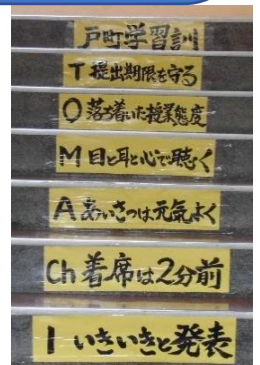 戸町学習訓
T 提出期限を守る
O 落ち着いた授業態度
M 目と耳と心で聴く
A あいさつは元気よく
Ch 着席は2分前
I いきいきと発表